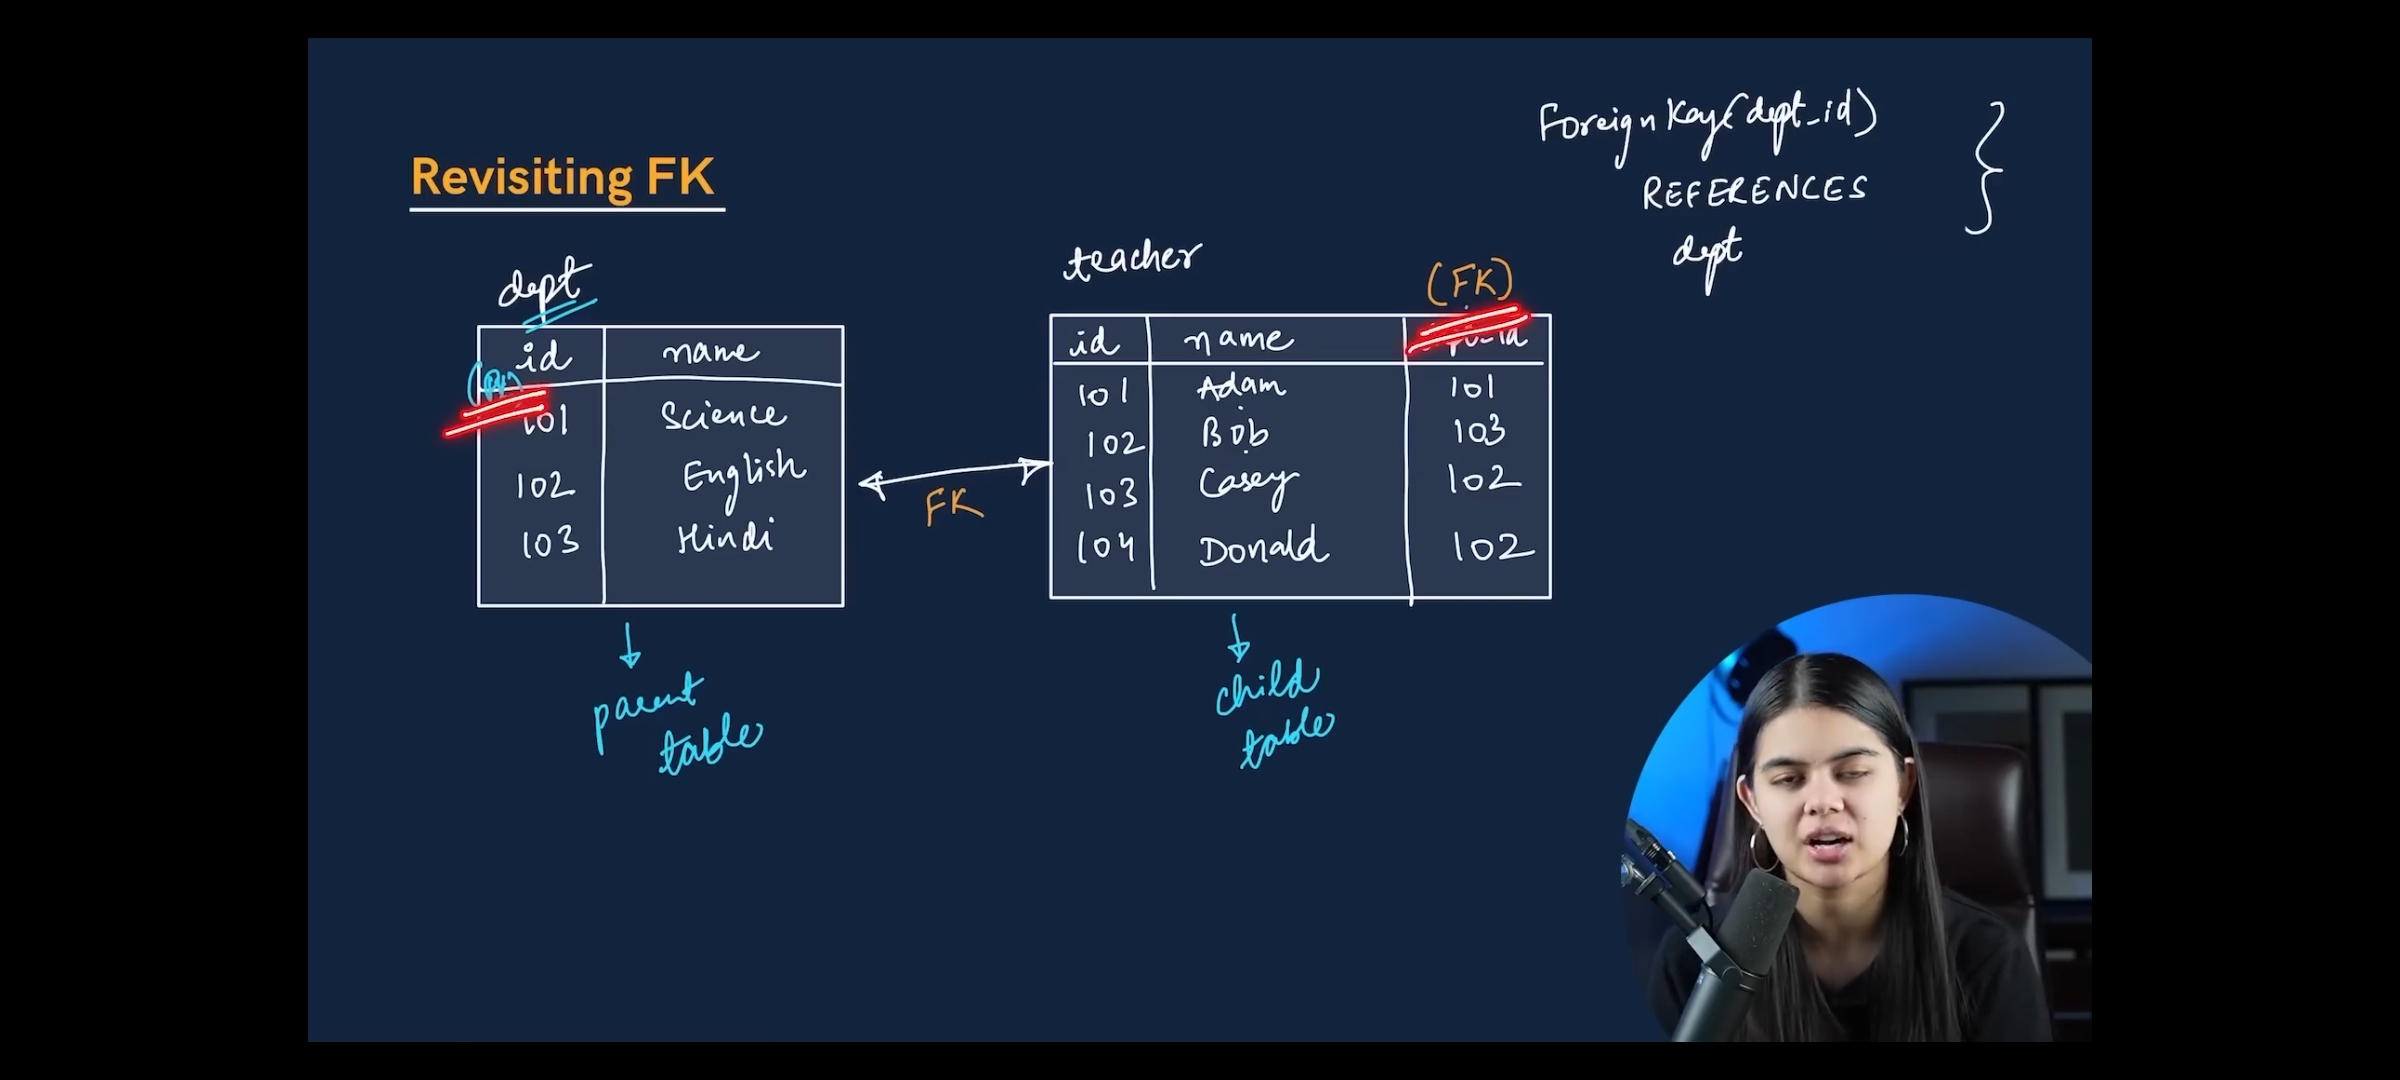 Foreign Key (dept_id)
REFERENCES
dept
Revisiting FK
dept
id name
101 Science
102 English
103 Hindi
parent
table
FK
teacher
(FK)
id name
101 Adam 101
102 Bob 103
103 Casey 102
104 Donald 102
child
table